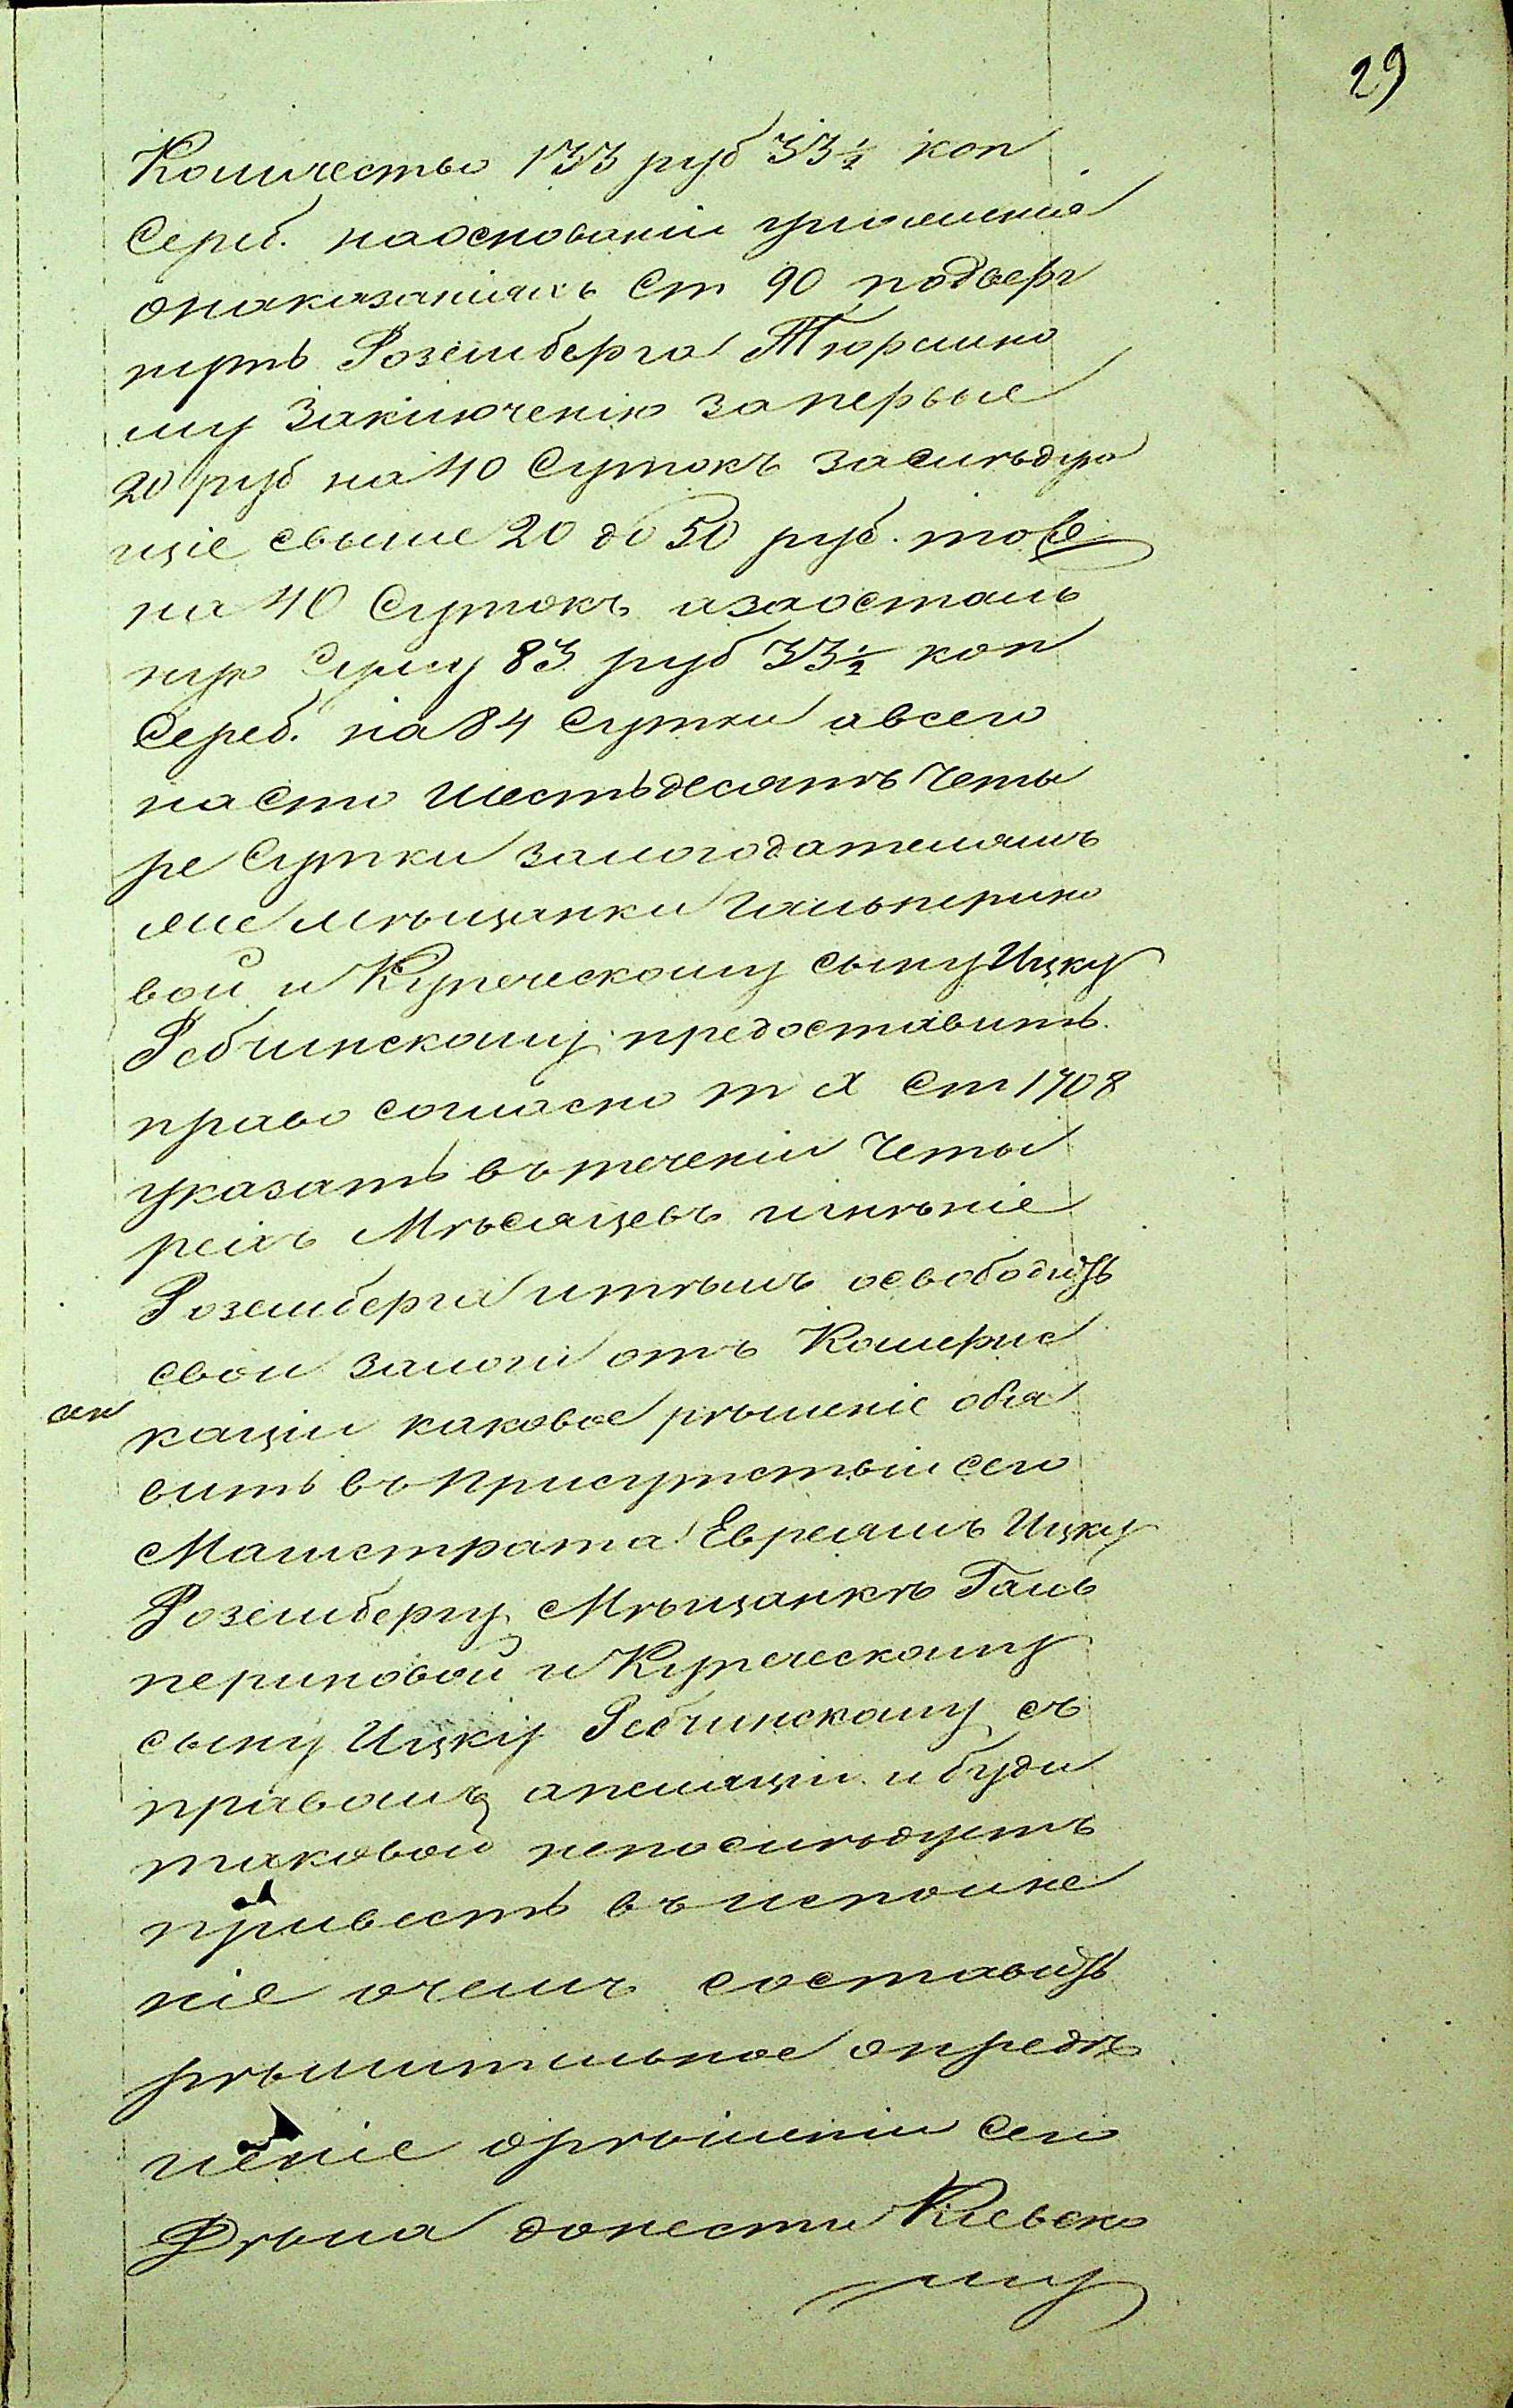 29
Количество 133 руб 33½ коп
Сереб. наоснованіи уложенія
онаказаніяхъ Ст 90 подверг
нуть Роземберга Тюремно
му Заключенію Запервые
20 руб на 40 Сутокъ Заслѣдую
щіе свыше 20 до 50 руб. тоже
на 40 Сутокъ азаосталь
ную Суму 83 руб 33½ коп
Сереб. на 84 Сутки авсего
наСто Шестьдесятъ Четы
ре Сутки залогодателямъ
же мѣщанки Гальперино
вой и Купеческому сыну Ицку
Ребчинскому предоставить
право согласно т X Ст 1708
указать втеченіи Четы
рехъ Мѣсяцевъ имѣніе
Роземберга итѣмъ освободить
свои залоги отъ Комерис
сек
каціи каковое рѣшеніе объя
вить въ присутствіи сего
Магистрата Евреямъ Ицку
Роземберу Мѣщанкѣ Галь
периновой и Купеческому
сыну Ицку Ребчинскому съ
правомъ апеляціи и буди
таковой непослѣдуетъ
привесть въ исполне
ніе очемъ составить
рѣшительное опредѣ
леніе орѣшеніи Сего
Дѣла донести Киевско
му